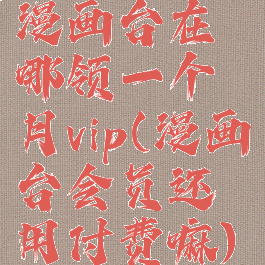 漫画台在
哪领一个
月vip(漫画
台会员还
用付费嘛)